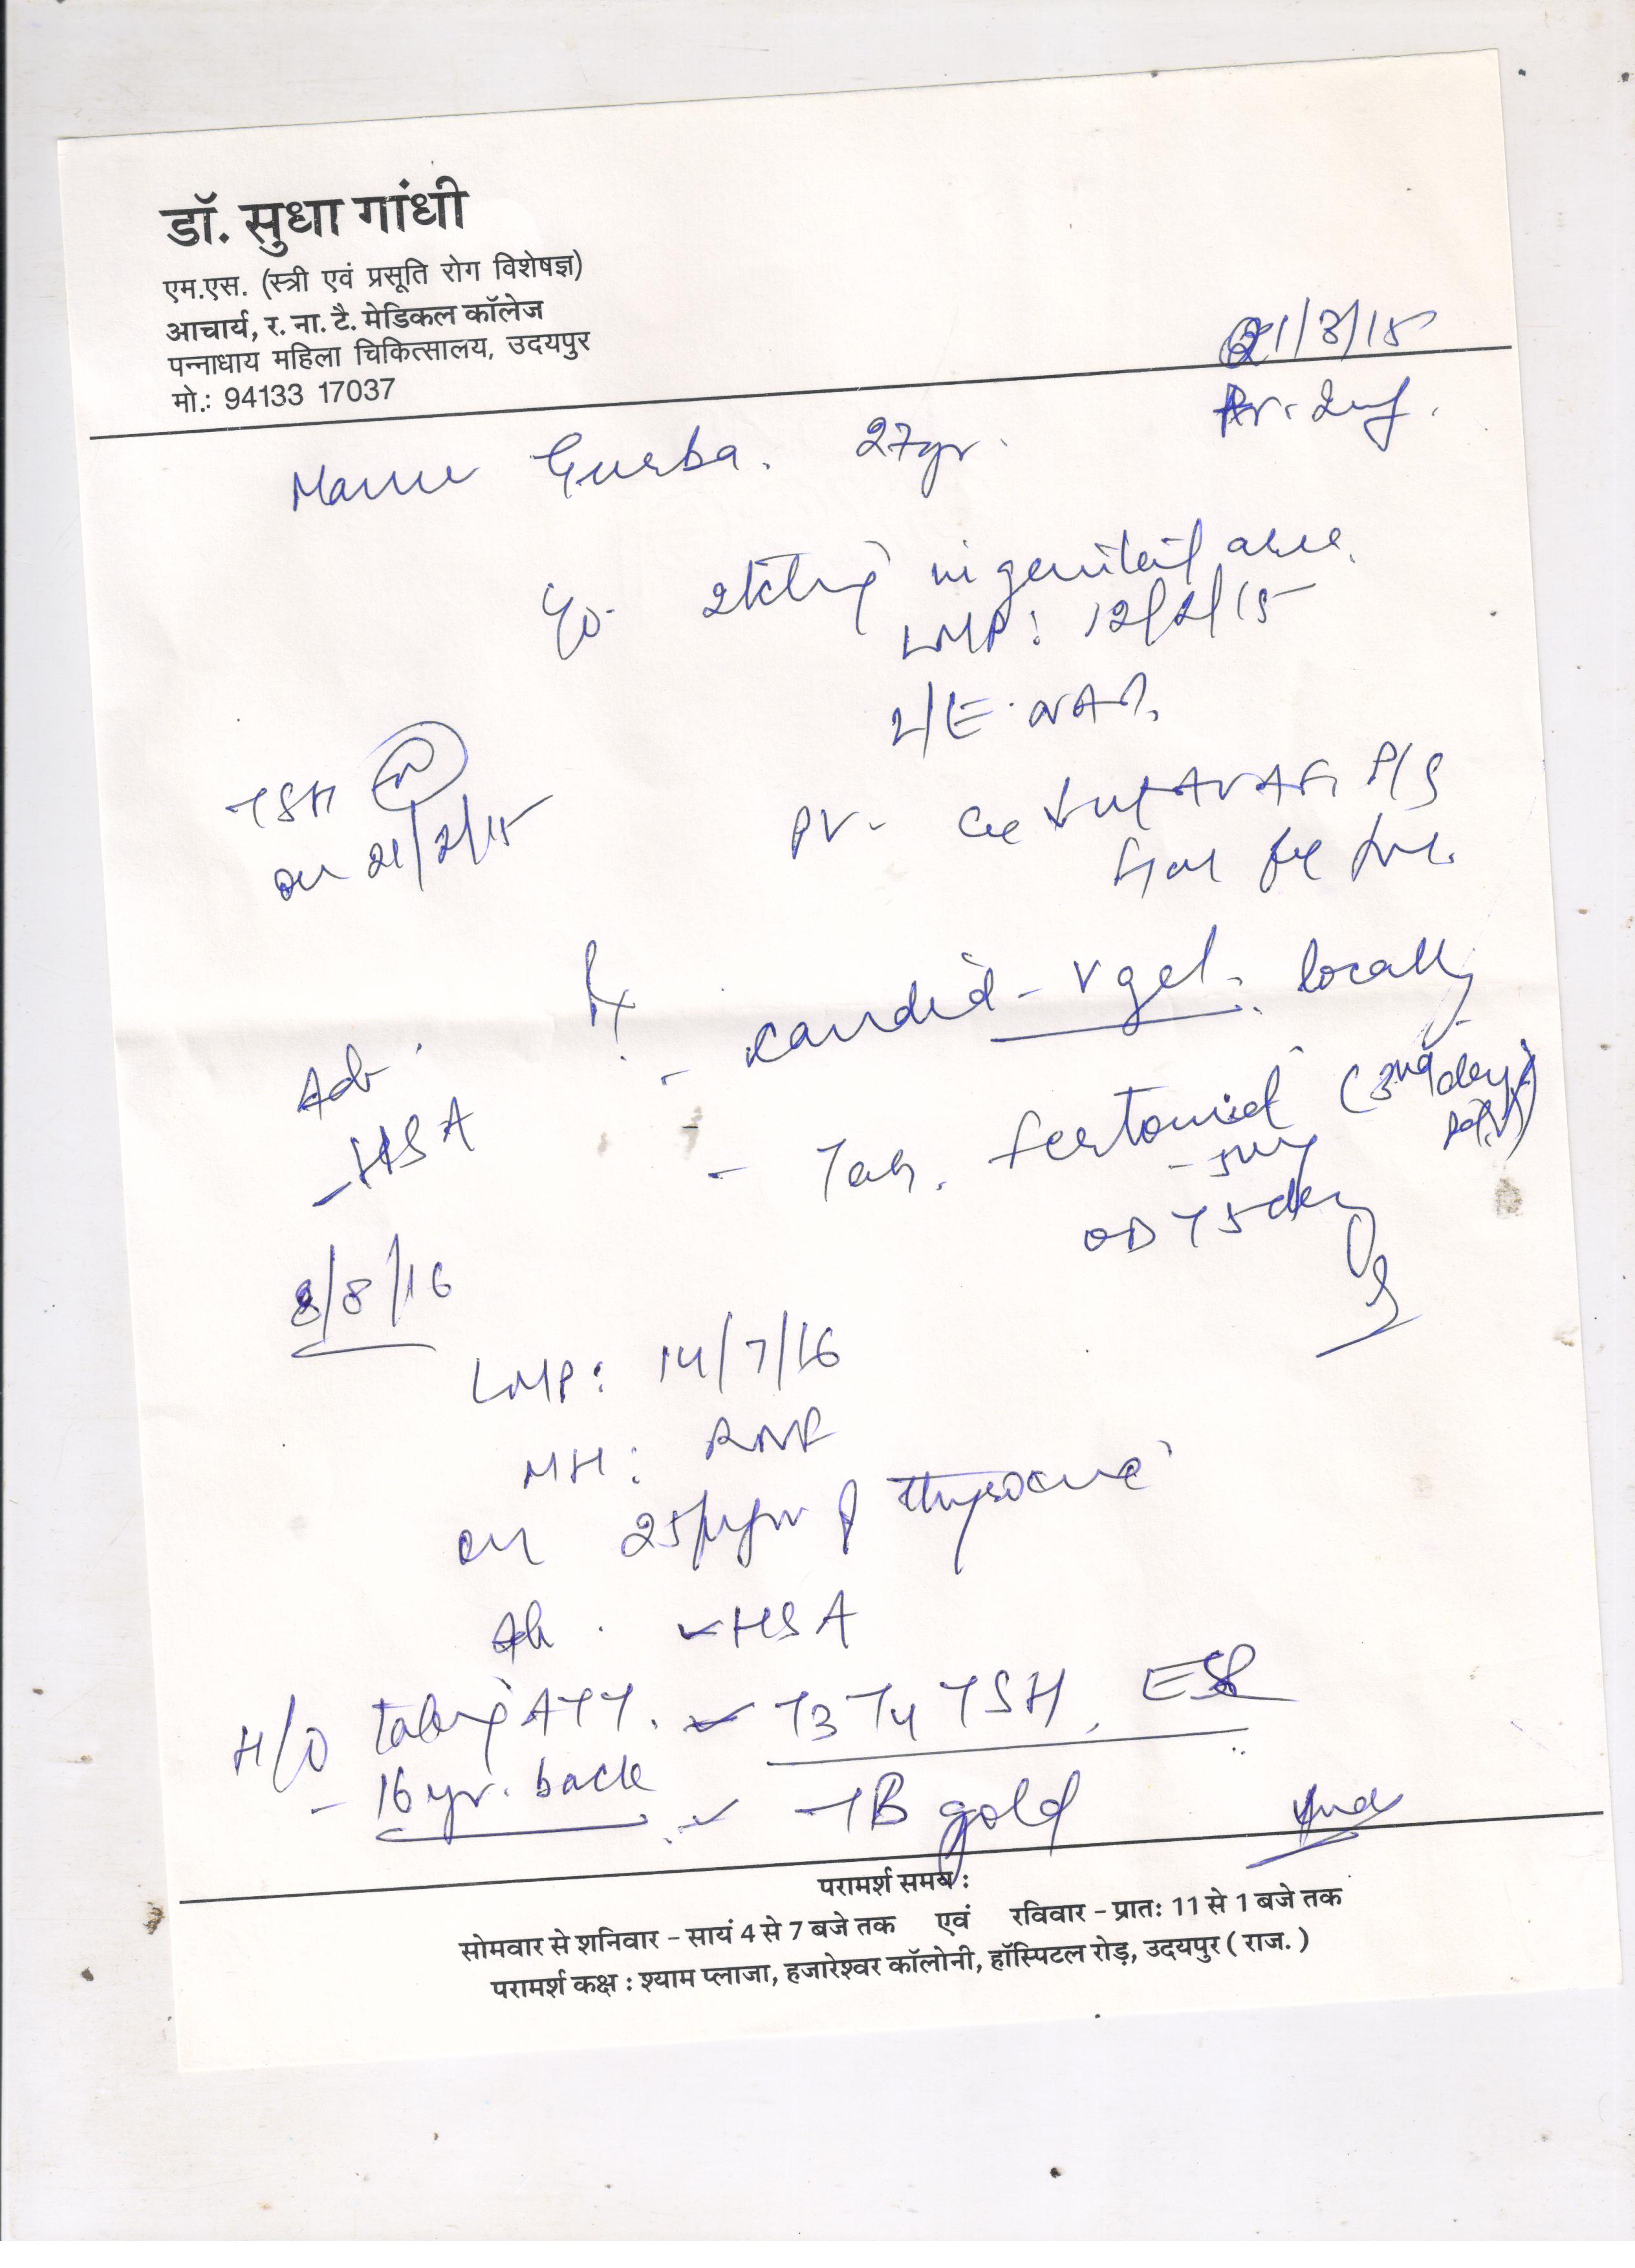 डॉ. सुधा गांधी
एम.एस. (स्त्री एवं प्रसूति रोग विशेषज्ञ)
आचार्य, र. ना. टै. मेडिकल कॉलेज
पन्नाधाय महिला चिकित्सालय, उदयपुर
मो.: 94133 17037
21/3/15
27yr.
C/o. in genital area.
LMP: 12/2/15
L/E. NAD.
TSH (N)
on 21/2/15
PV- Cx ↓ ut AVAF P/S
Rx
- candid-V gel. locally
Adv.
- HSA
- Tab. (3rd day
OD X 5 day
8/8/16
LMP: 14/7/16
MH:
on of thyroxine
Adv. HSA
H/O taking ATT. T3 T4 TSH, ESR
- 16 yr. back
TB gold
परामर्श समय :
सोमवार से शनिवार - सायं 4 से 7 बजे तक एवं रविवार - प्रातः 11 से 1 बजे तक
परामर्श कक्ष : श्याम प्लाजा, हजारेश्वर कॉलोनी, हॉस्पिटल रोड़, उदयपुर ( राज. )